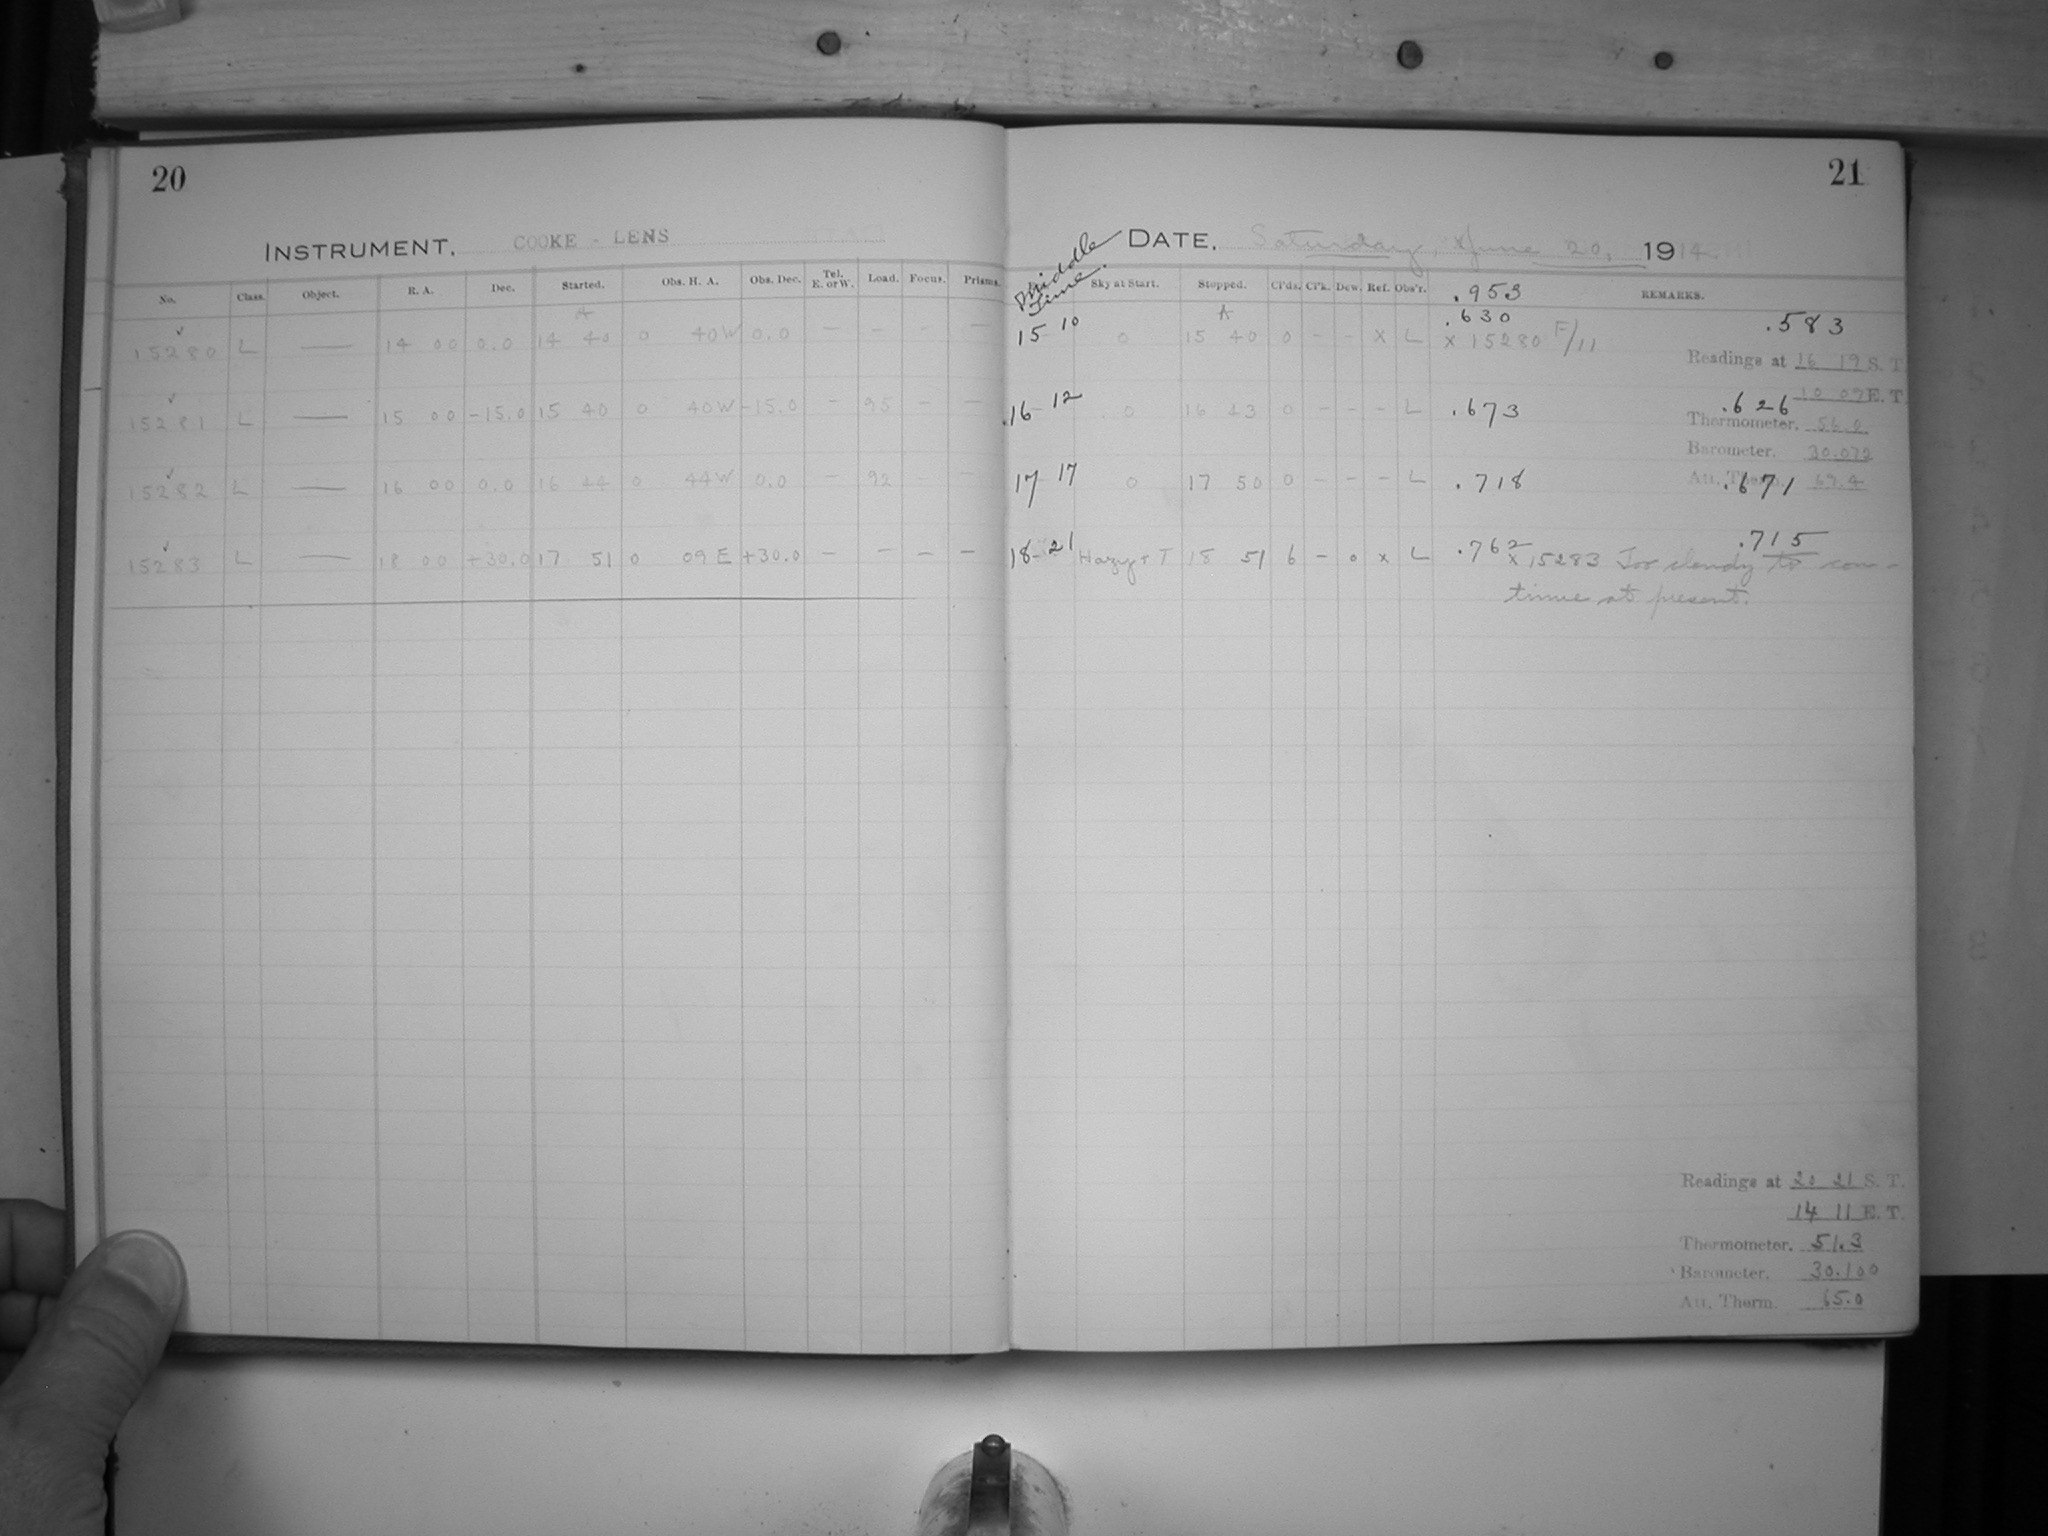 20
INSTRUMENT. COOKE - LENS
No. Class. Object. R. A. Dec. Started. Obs. H. A. Obs. Dec. Tel. E. or W. Load. Focus. Prisms.
15280 L — 14 00 0.0 14 40 0 40W 0.0 — — — —
15281 L — 15 00 -15.0 15 40 0 40W -15.0 — 95 — —
15282 L — 16 00 0.0 16 44 0 44W 0.0 — 92 — —
15283 L — 18 00 +30.0 17 51 0 09E +30.0 — — — —
21
Middle Time. DATE, Saturday, June 20, 1914
Sky at Start. Stopped. Cl'ds. Cl'k. Dew. Ref. Obs'r. .953 REMARKS.
.630 .583
15-10 0 15 40 0 - - X L X 15280 F/11
Readings at 16 19 S. T.
10 09 E. T.
16-12 0 16 43 0 - - - L .673 .626
Thermometer. 56.0
Barometer. 30.072
17-17 0 17 50 0 - - - L .718 .671
Att. Therm. 69.4
18-21 Hazy & T 18 51 6 - 0 x L .762 .715
x 15283 Too cloudy to con-
tinue at present.
Readings at 20 21 S. T.
14 11 E. T.
Thermometer. 51.3
Barometer. 30.100
Att. Therm. 65.0